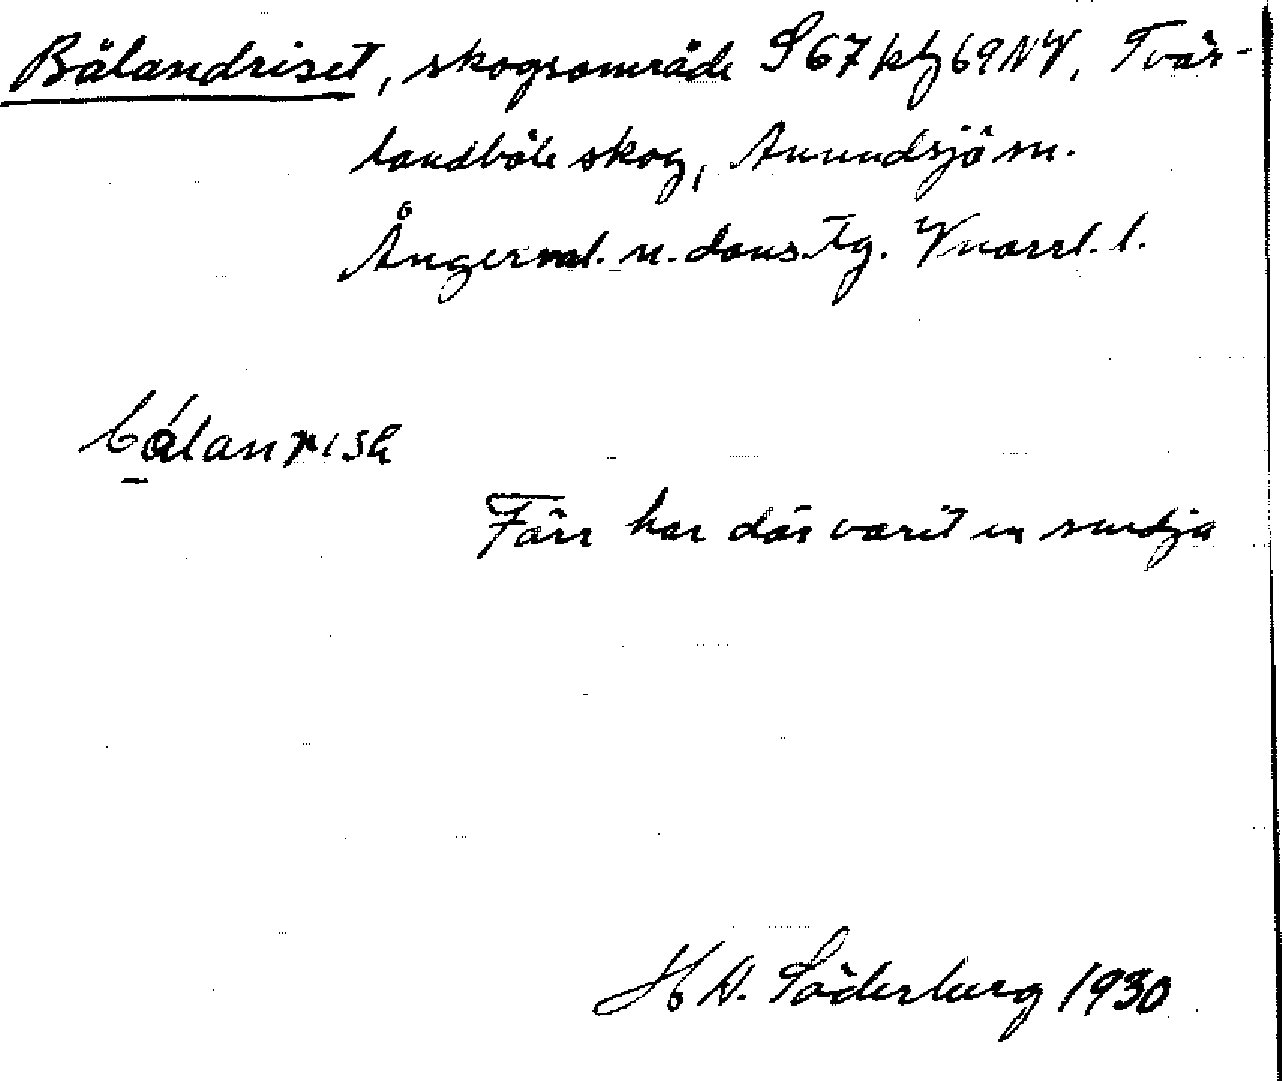 Bålandriset, skogsområde S 67 kfz 69 NV, Tvär-
landböle skog, Anundsjö sn.
Ångerml. n. doms. tg. Vnorrl. l.
bálanrisa
Förr har där varit en smedja
H D. Söderberg 1930